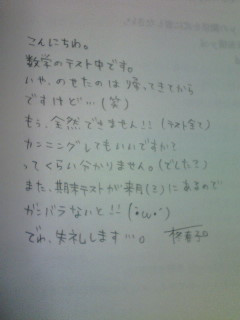 こんにちわ。
数学のテスト中です。
いや、のせたのは帰ってきてから
ですけど…(笑)
もう、全然できません!!(テスト全て)
カンニングしてもいいですかて
ってくらい分かりません。(でした?)
また、期末テストが来月(2)にあるので
ガンバラないと!!(•̀ω•́)
でわ、失礼します…。